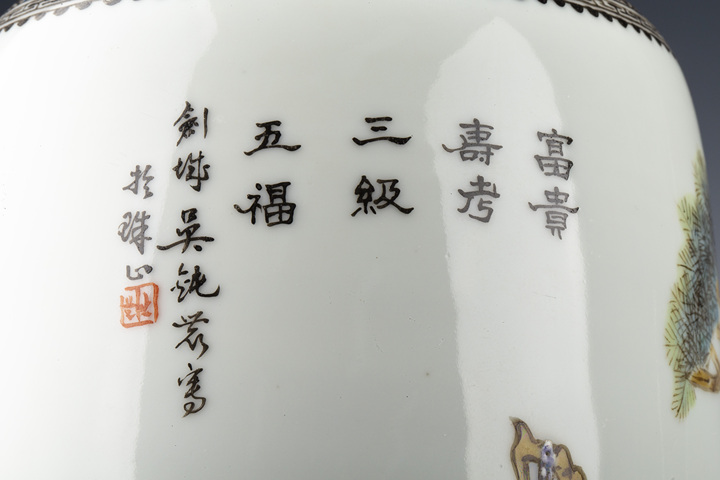 富貴
壽考
三級
五福
劍城吳鈍農寫
於珠山